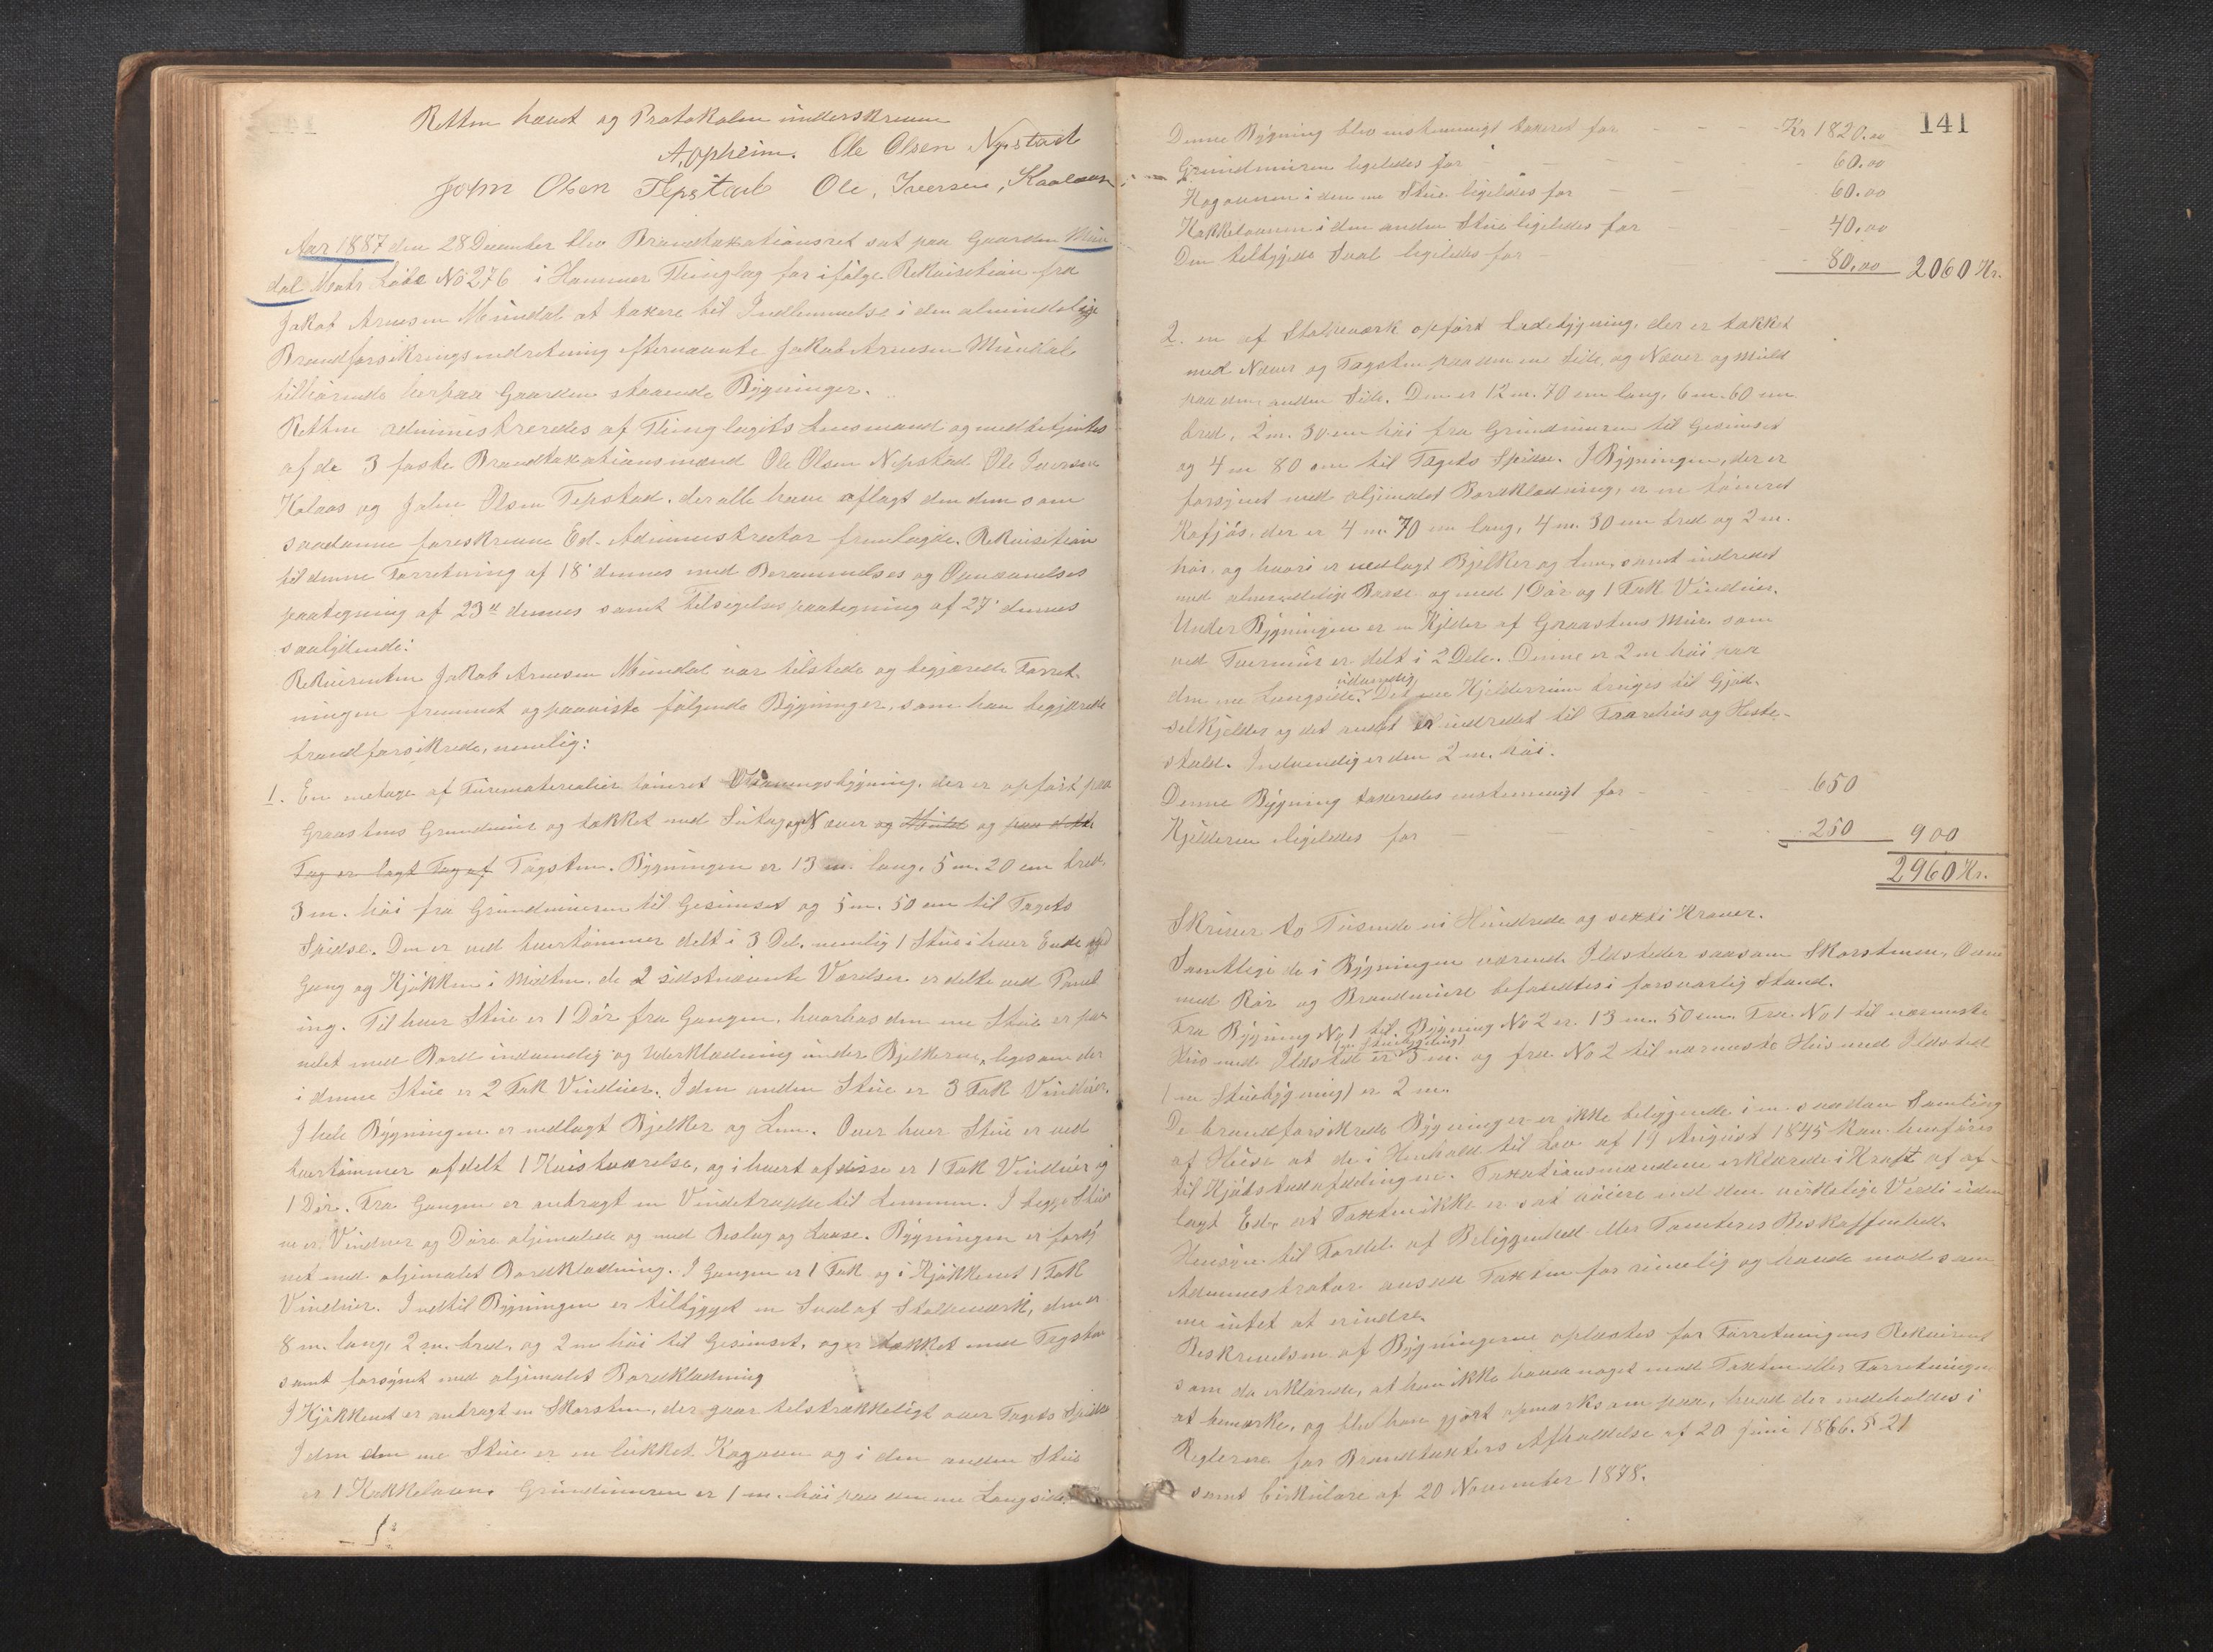 Retten hævet og Protokolen underskreven
A, Opheim. Ole Olsen Nepstad
John Olsen Tepstad Ole, Iversen, Kaalaas
Aar 1887 den 28 December blev Brandtaxationsret sat paa Gaarden Mün
dal Matr Løbe No 276 i Hammer Thinglag for ifølge Rekvisition fra
Jakob Arnesen Mündal at taxere til Indlemmelse i den almindelige
Brandforsikringsindretning efternævnte Jakob Arnesen Mündal
tilhørende herpaa Gaarden staaende Bygninger.
Retten administreredes af Thinglagets Lensmand og medbetjentes
af de 3 faste Brandtaxationsmænd Ole Olsen Nepstad Ole Iversen
Kolaas og John Olsen Tepstad, der alle have aflagt den dem som
saadanne foreskrevne Ed. Administrator fremlagde Rekvisition
til denne Forretning af 18' dennes med Berammelses og Opnævnelses
paategning af 23de dennes samt Tilsigelsespaategning af 27' dennes
saalydende:
Rekvirenten Jakob Arnesen Mündal var tilstede og begjærede Forret-
ningen fremmet og paaviste følgende Bygninger, som han begjærede
brandforsikrede, nemlig:
1. En een etage af Furematerialier tømret Vaaningsbygning, der er opført paa
Graastens Grundmur og tækket med Sutag og Næver og Muld og paa dette
Tag er lagt Tag af Tagsten. Bygningen er 13 m. lang, 5 m. 20 cm bred,
3 m. høi fra Grundmuren til Gesimset og 5 m. 50 cm til Tagets
Spidse. Den er ved tvertømmer delt i 3 Del. nemlig 1 Stue i hver Ende og
Gang og Kjøkken i Midten, de 2 sidstnævnte Værelser er delte ved Panel
ing. Til hver Stue er 1 Dør fra Gangen, hvorhos den ene Stue er pa-
nelet med Bord indvendig og Underklædning under Bjelkerne, ligesom der
i denne Stue er 2 Fak Vinduer. I den anden Stue er 3 Fak Vinduer.
I hele Bygningen er nedlagt Bjelker og Lem. Over hver Stue er ved
tvertømmer afdelt 1 Kvistværelse, og i hvert af disse er 1 Fak Vinduer og
1 Dør. Fra Gangen er anbragt en Vindetrappe til Lemmen. I begge Stuer
er Vinduer og Døre oljemalede og med Beslag og Laase. Bygningen er forsy
net med oljemalet Bordklædning. I Gangen er 1 Fak og i Kjøkkenet 1 Fak
Vinduer. Indtil Bygningen er tilbygget en Sval af Stolpeværk, den er
8 m. lang, 2 m. bred, og 2 m høi til Gesimset, og er tækket med Tagsten
samt forsynt med oljemalet Bordklædning
I Kjøkkenet er anbragt en Skorsten, der gaar tilstrækkeligt over Tagets Spidse
I den den ene Stue er en lukket Kogovn og i den anden Stue
er 1 Kakkelovn. Grundmuren er 1 m. høi paa den ene Langside.
141
Denne Bygning blev enstemmigt taxeret for - - - Kr 1820.00
Grundmuren ligeledes for - - - 60.00
Kogovnen i den ene Stue ligeledes for - - 60.00
Kakkelovnen i den anden Stue ligeledes for - - 40,00
Den tilbyggede Sval ligeledes for - - 80,00 2060 Kr.
2. en af Stolpeværk opført Ladebygning, der er tækket
med Næver og Tagsten paa den ene Side, og Næver og Muld
paa den anden Side. Den er 12 m. 70 cm lang, 6 m. 60 cm
bred, 2 m. 30 cm høi fra Grundmuren til Gesimset
og 4 m 80 cm til Tagets Spidse. I Bygningen, der er
forsynet med oljemalet Bordklædning, er en tømret
Kofjøs, der er 4 m. 70 cm lang, 4 m. 30 cm bred og 2 m.
høi, og hvori er nedlagt Bjelker og Lem, samt indredet
med almindelige Baase og med 1 Dør og 1 Fak Vinduer.
Under Bygningen er en Kjelder af Graastens Mur, som
ved Tvermur er delt i 2 Dele. Denne er 2 m høi paa
den ene Langside udvendig. Det ene Kjelderrum bruges til Gjød-
selkjelder og det andet er indredet til Faarehus og Heste-
stald. Indvendig er den 2 m. høi.
Denne Bygning taxeredes enstemmigt for - - - 650
Kjelderen ligeledes for - - - 250 900
2960 Kr.
Skriver to Tusende ni Hundrede og sexti Kroner.
Samtlige de i Bygningen værende Ildsteder saasom Skorstenen, Ovne
med Rør og Brandmure befandtes i forsvarlig Stand.
Fra Bygning No 1 til Bygning No 2 er 13 m. 50 cm. Fra No 1 til nærmeste
Hus med Ildsted (en Stuebygning) er 3 m. og fra No 2 til nærmeste Hus med Ildsted
(en Stuebygning) er 2 m.
De brandforsikrede Bygninger er ikke beliggende i en saadan Samling
af Huse at de i Henhold til Lov af 19 August 1845 kan henføres
til Kjøbstadafdelingen. Taxationsmændene erklærede i Kraft af af-
lagt Ed, at Taxten ikke er sat høiere end den virkelige Værdi uden
Hensyn til Fordel af Beliggenhed eller Tomtens Beskaffenhed.
Administrator ansaa Taxten for rimelig og havde mod sam
me intet at erindre.
Beskrivelsen af Bygningerne oplæstes for Forretningens Rekvirent
som da erklærede, at han ikke havde noget mod Taxten eller Forretningen
at bemærke, og blev han gjort opmærksom paa, hvad der indeholdes i
Reglerne for Brandtaxters Afholdelse af 20 Juni 1866. § 21
samt Cirkulære af 20 November 1878.